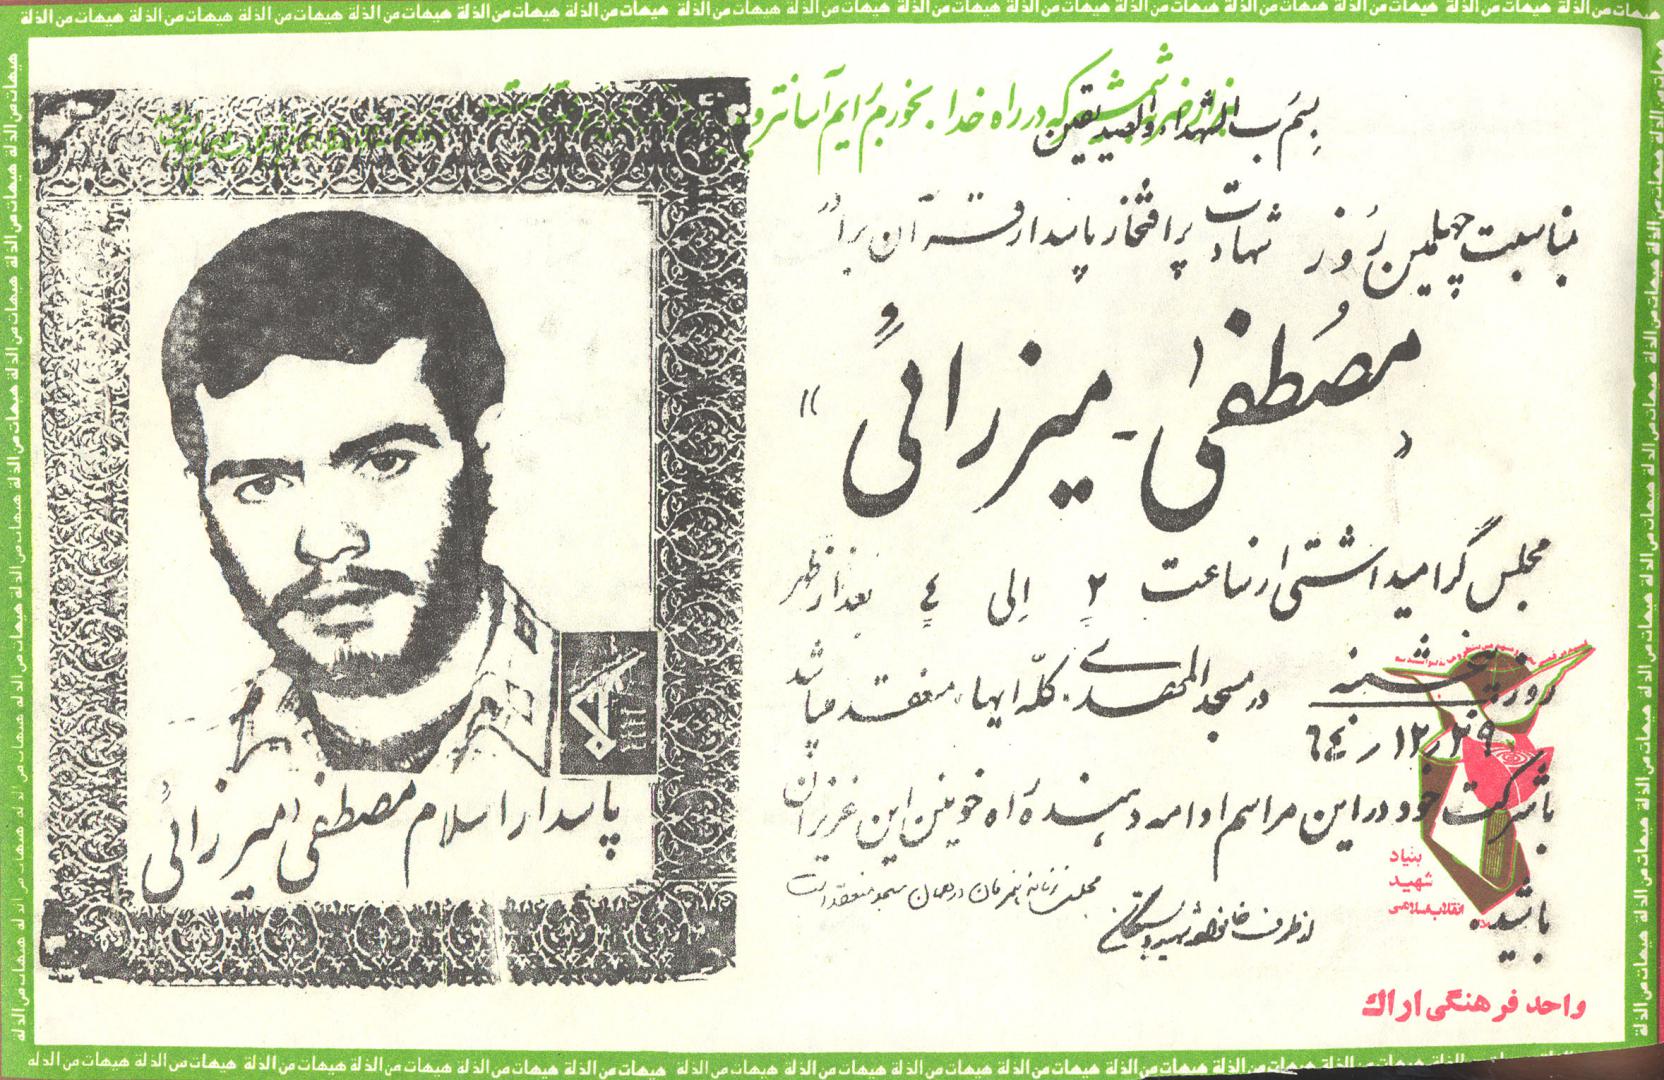 هیهات من الذلة هیهات من الذلة هیهات من الذلة هیهات من الذلة هیهات من الذلة
هزار ضربه شمشیر که در راه خدا بخورم برایم آسانتر
بسم رب الشهداء والصدیقین
بمناسبت چهلمین روز شهادت پرافتخار پاسدار قرآن برادر
« مصطفی - میرزائی »
مجلس گرامیداشتی از ساعت ۲ الی ٤ بعد از ظهر
روز پنجشنبه در مسجد المهدی، کله ایها، منعقد میباشد
با شرکت خود در این مراسم ادامه دهنده راه خونین این عزیزان
باشید.
مجلس زنانه همزمان در همان مسجد منعقد است
از طرف خانواده شهید و بستگان
پاسدار اسلام مصطفی میرزائی
بنیاد
شهید
انقلاب اسلامی
واحد فرهنگی اراک
هیهات من الذلة هیهات من الذلة هیهات من الذلة هیهات من الذلة هیهات من الذلة